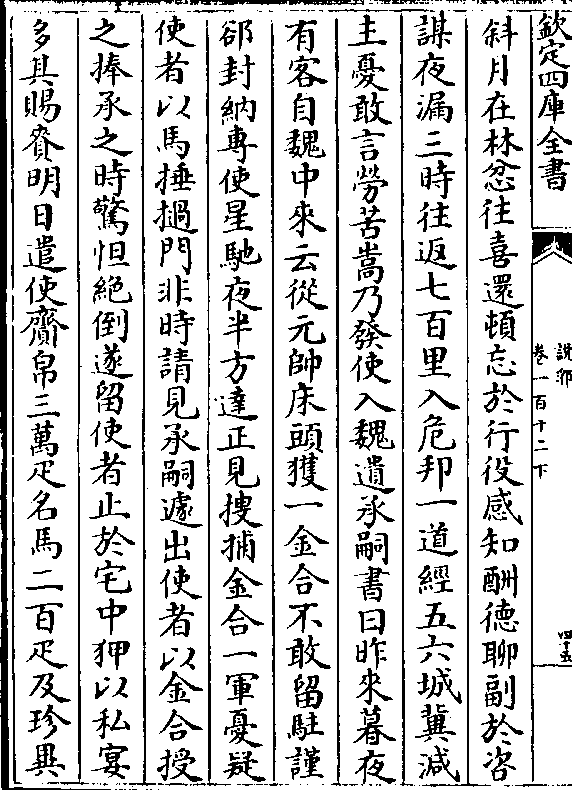 欽定四庫全書
說郛
卷一百十二下
四十五
斜月在林忿往喜還頓忘於行役感知酬德聊副於咨
謀夜漏三時往返七百里入危邦一道經五六城冀減
主憂敢言勞苦嵩乃發使入魏遺承嗣書曰昨來暮夜
有客自魏中來云從元帥床頭獲一金合不敢留駐謹
郤封納專使星馳夜半方達正見搜捕金合一軍憂疑
使者以馬捶撾門非時請見承嗣遽出使者以金合授
之捧承之時驚怛絕倒遂留使者止於宅中狎以私宴
多其賜賚明日遣使齎帛三萬疋名馬二百疋及珍異